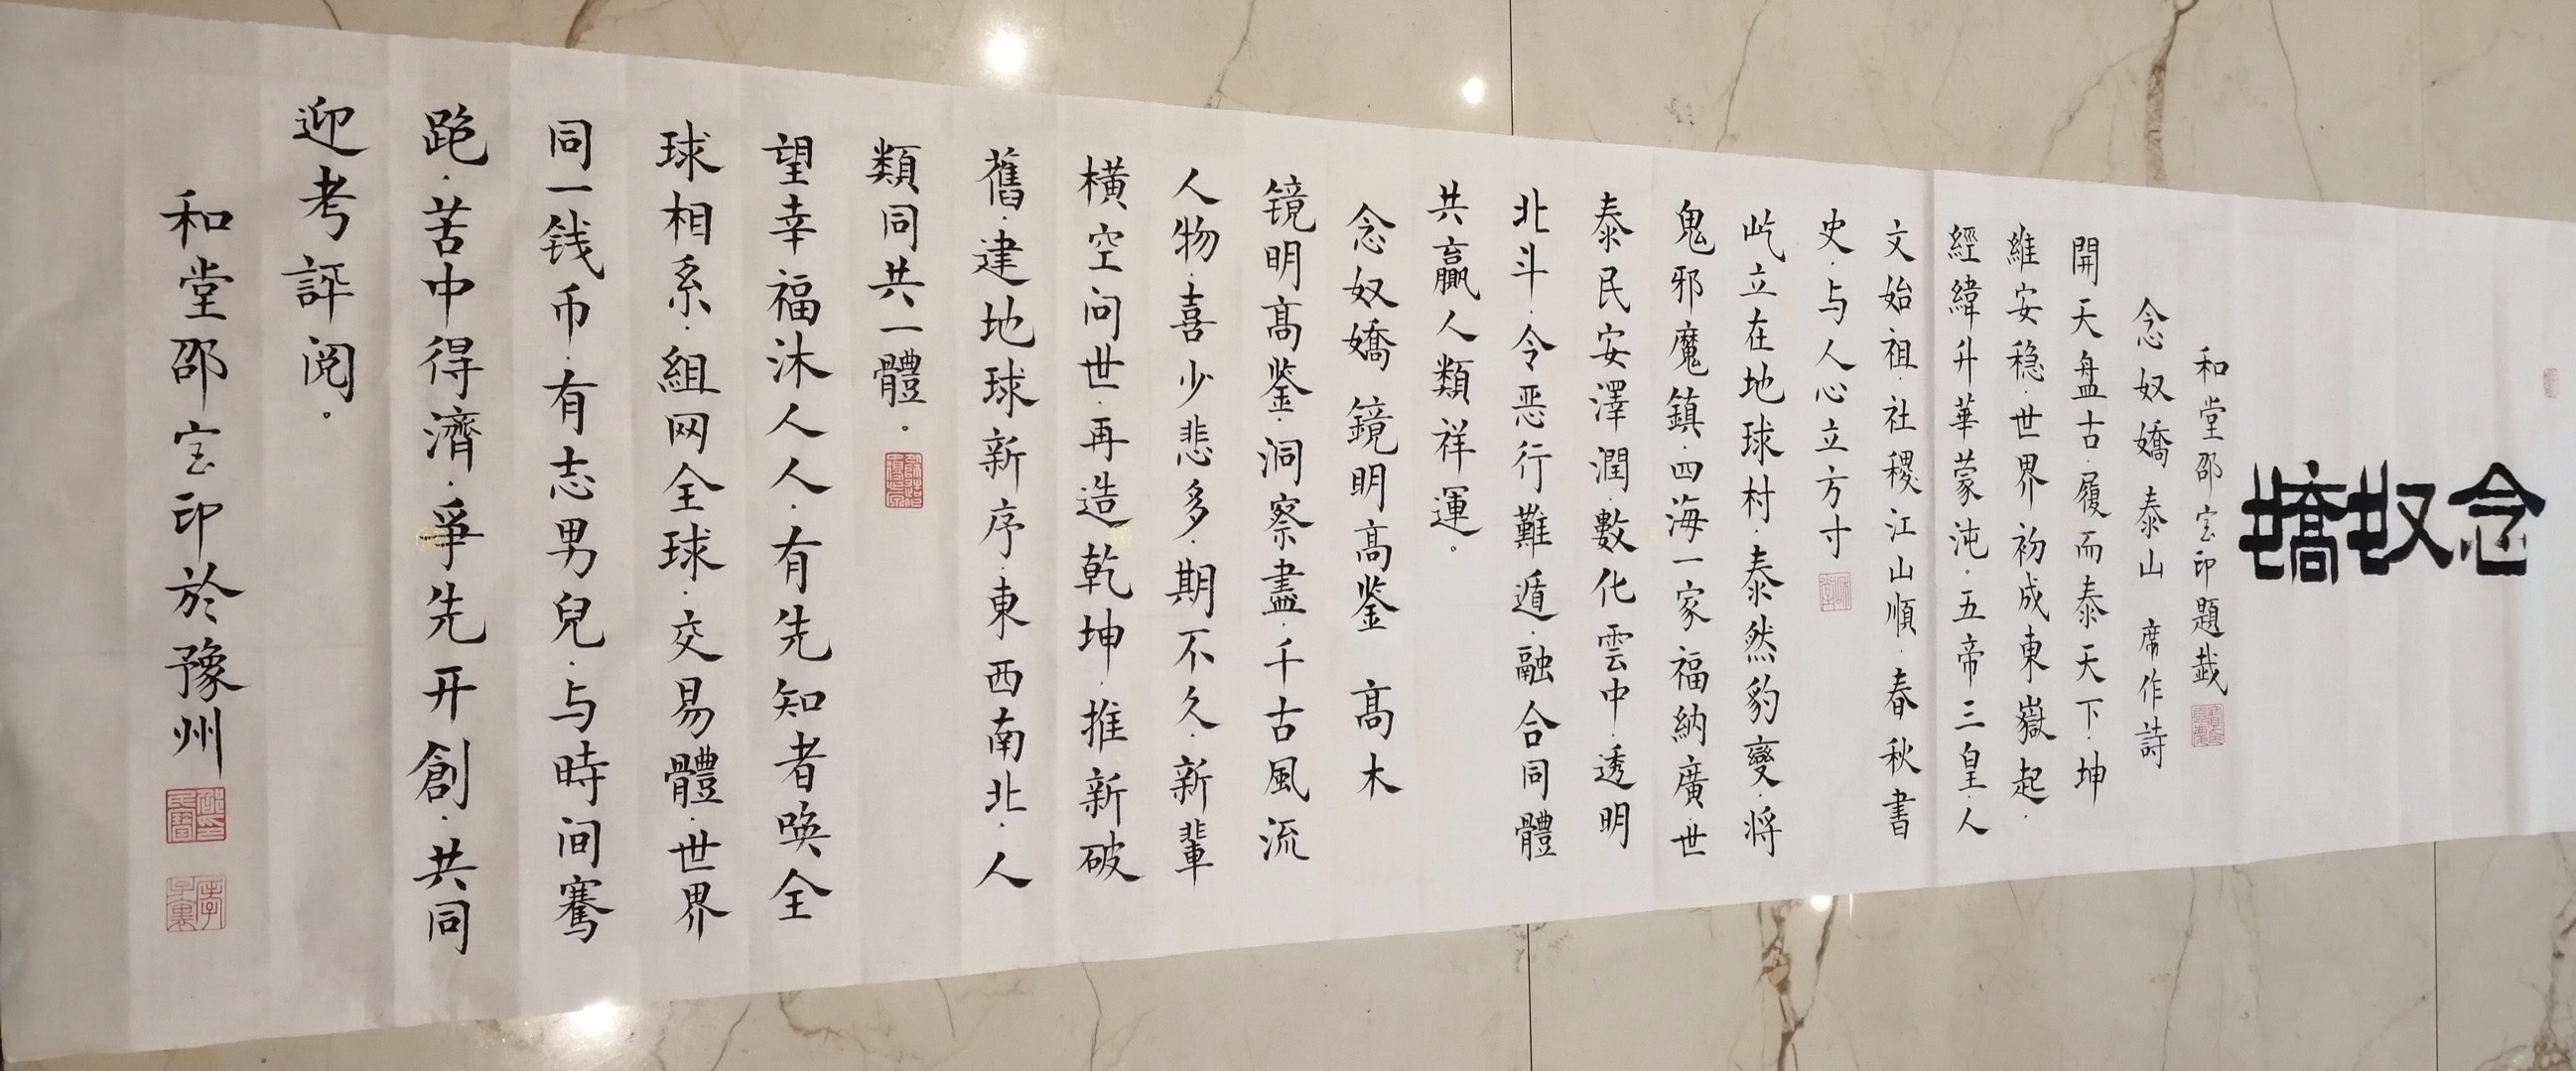 念奴嬌
和堂邵宝印題
念奴嬌 泰山 席作詩
開天盘古·履而泰天下·坤
維安穏·世界初成東嶽起·
經緯升華蒙沌·五帝三皇·人
文始祖·社稷江山順·春秋書
史·与人心立方寸
屹立在地球村·泰然豹變·将
鬼邪魔鎮·四海一家福納廣·世
泰民安澤潤·數化雲中·透明
北斗·令恶行難遁·融合同體
共贏人類祥運。
念奴嬌 鏡明高鉴 高木
镜明高鉴·洞察盡·千古風流
人物·喜少悲多·期不久·新輩
横空问世·再造乾坤·推新破
舊·建地球新序·東西南北·人
類同共一體。
望幸福沐人人·有先知者唤全
球相系·組网全球·交易體·世界
同一钱币·有志男兒·与時间騫
跪·苦中得濟·爭先开創·共同
迎考評阅。
和堂邵宝印於豫州